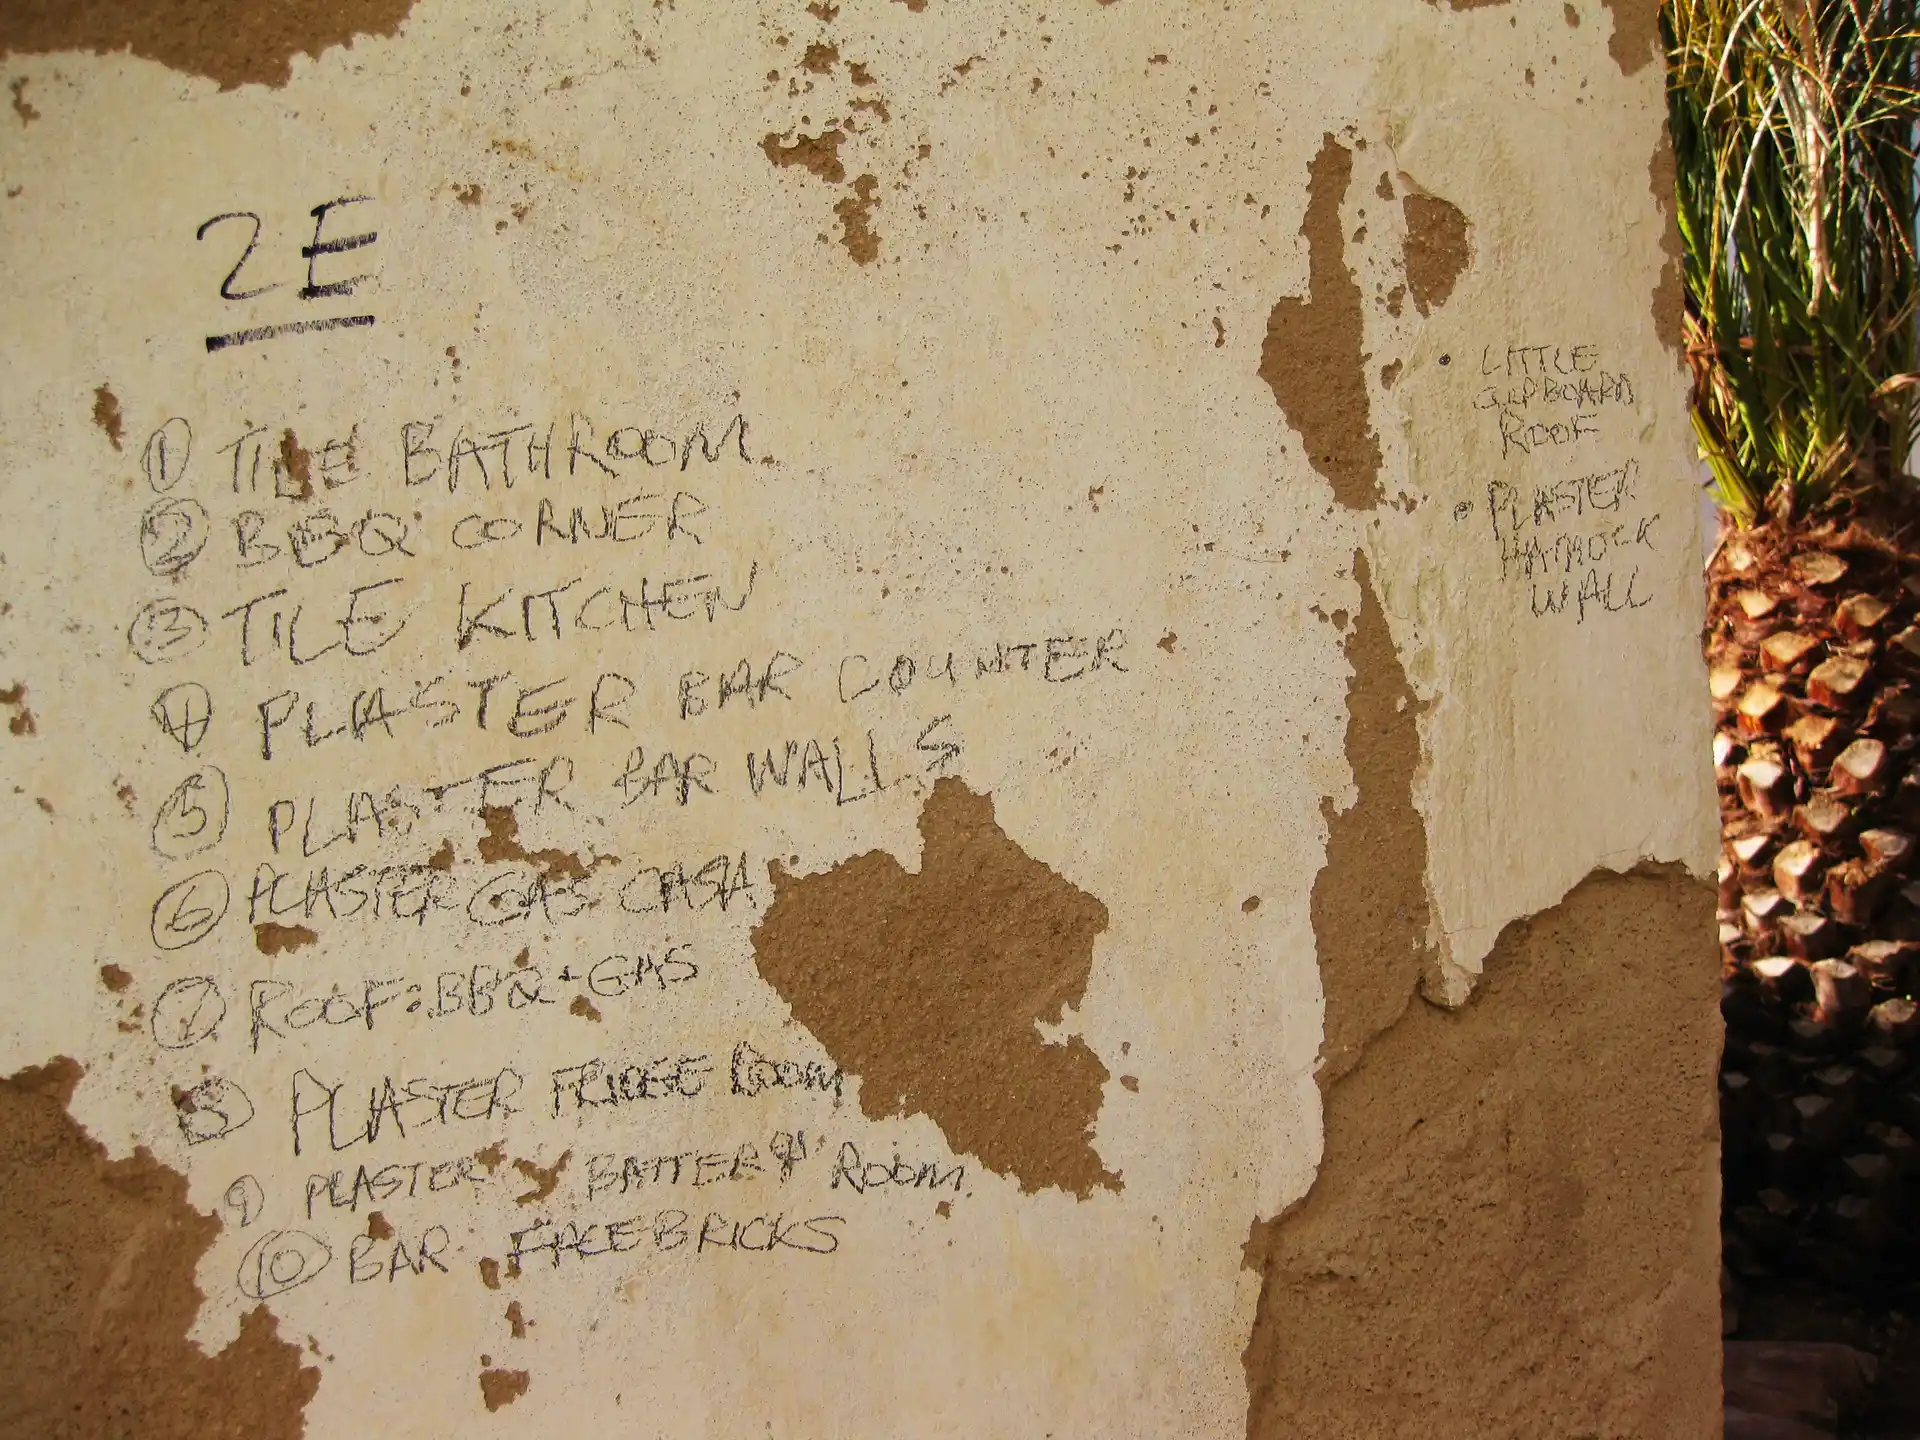 2E
① TILE BATHROOM
② BBQ CORNER
③ TILE KITCHEN
④ PLASTER BAR COUNTER
⑤ PLASTER BAR WALLS
⑥ PLASTER GAS CASA
⑦ ROOF: BBQ + GAS
⑧ PLASTER FRIDGE ROOM
⑨ PLASTER BATTERY ROOM
⑩ BAR FACEBRICKS
• LITTLE
CUPBOARD
ROOF
• PLASTER
HAMOCK
WALL